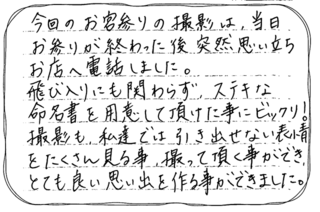 今回のお宮参りの撮影は、当日
お参りが終わった後突然思い立ち
お店へ電話しました。
飛び入りにも関わらず、ステキな
命名書を用意して頂けた事にビックリ!
撮影も、私達では引き出せない表情
をたくさん見る事、撮って頂く事ができ、
とても良い思い出を作る事ができました。